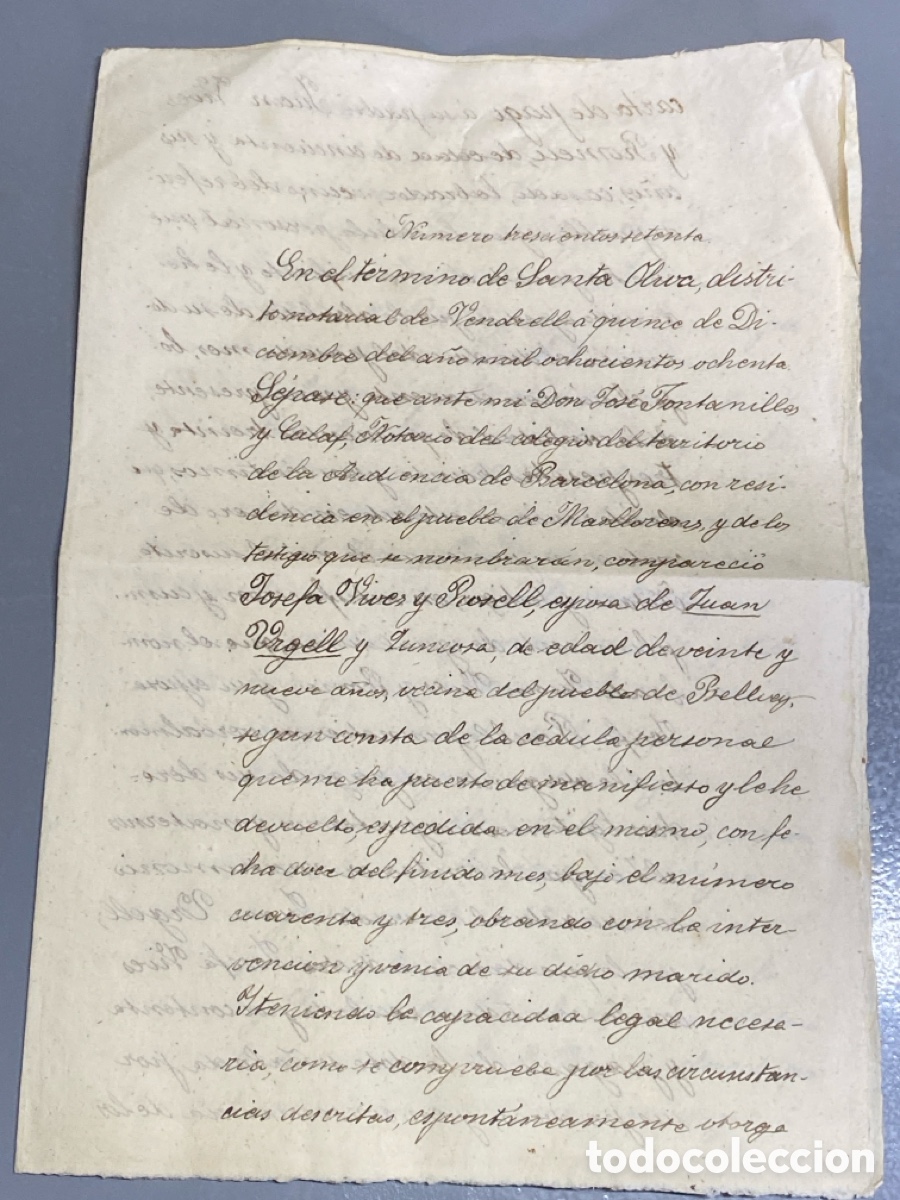 Número trescientos setenta
En el término de Santa Oliva, distri-
to notarial de Vendrell á quince de Di-
ciembre del año mil ochocientos ochenta
Sépase: que ante mi Don José Fontanilles
y Calaf, Notario del colegio del territorio
de la Audiencia de Barcelona, con resi-
dencia en el pueblo de Masllorens, y de los
testigos que se nombrarán, compareció
Josefa Vives y Rosell, esposa de Juan
Urgéll y Juncosa, de edad de veinte y
nueve años, vecina del pueblo de Bellvey,
segun consta de la cédula personal
que me ha puesto de manifiesto y le he
devuelto, espedida en el mismo, con fe-
cha doce del finido mes, bajo el número
cuarenta y tres, obrando con la inter-
vencion y venia de su dicho marido.
Y teniendo la capacidad legal necesa-
ria, como se comprueba por las circunstan-
cias descritas, espontáneamente otorga
todocoleccion.net